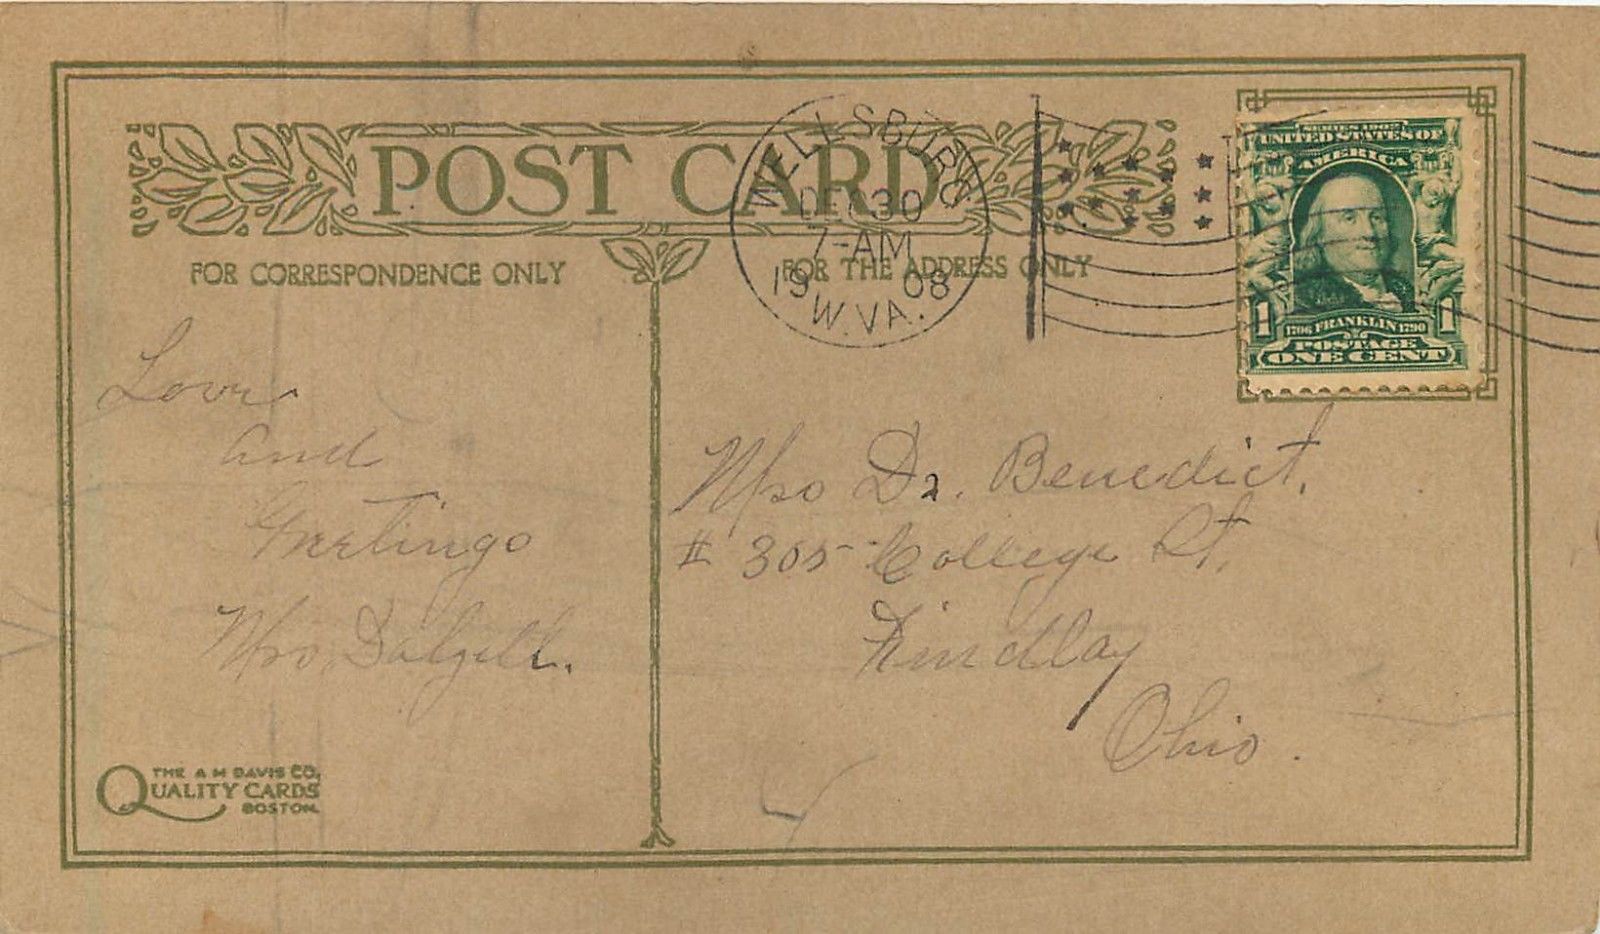 POST CARD
FOR CORRESPONDENCE ONLY
FOR THE ADDRESS ONLY
WELLSBURG.
DEC 30
7-AM
1908
W. VA.
SERIES 1902
UNITED STATES OF
AMERICA
1 1
1706 FRANKLIN 1790
POSTAGE
ONE CENT
Love
and
Greetings
Mrs Dalzell.
Mrs Dr. Benedict,
# 305 College St.
Findlay
Ohio.
THE A M DAVIS CO,
QUALITY CARDS
BOSTON.